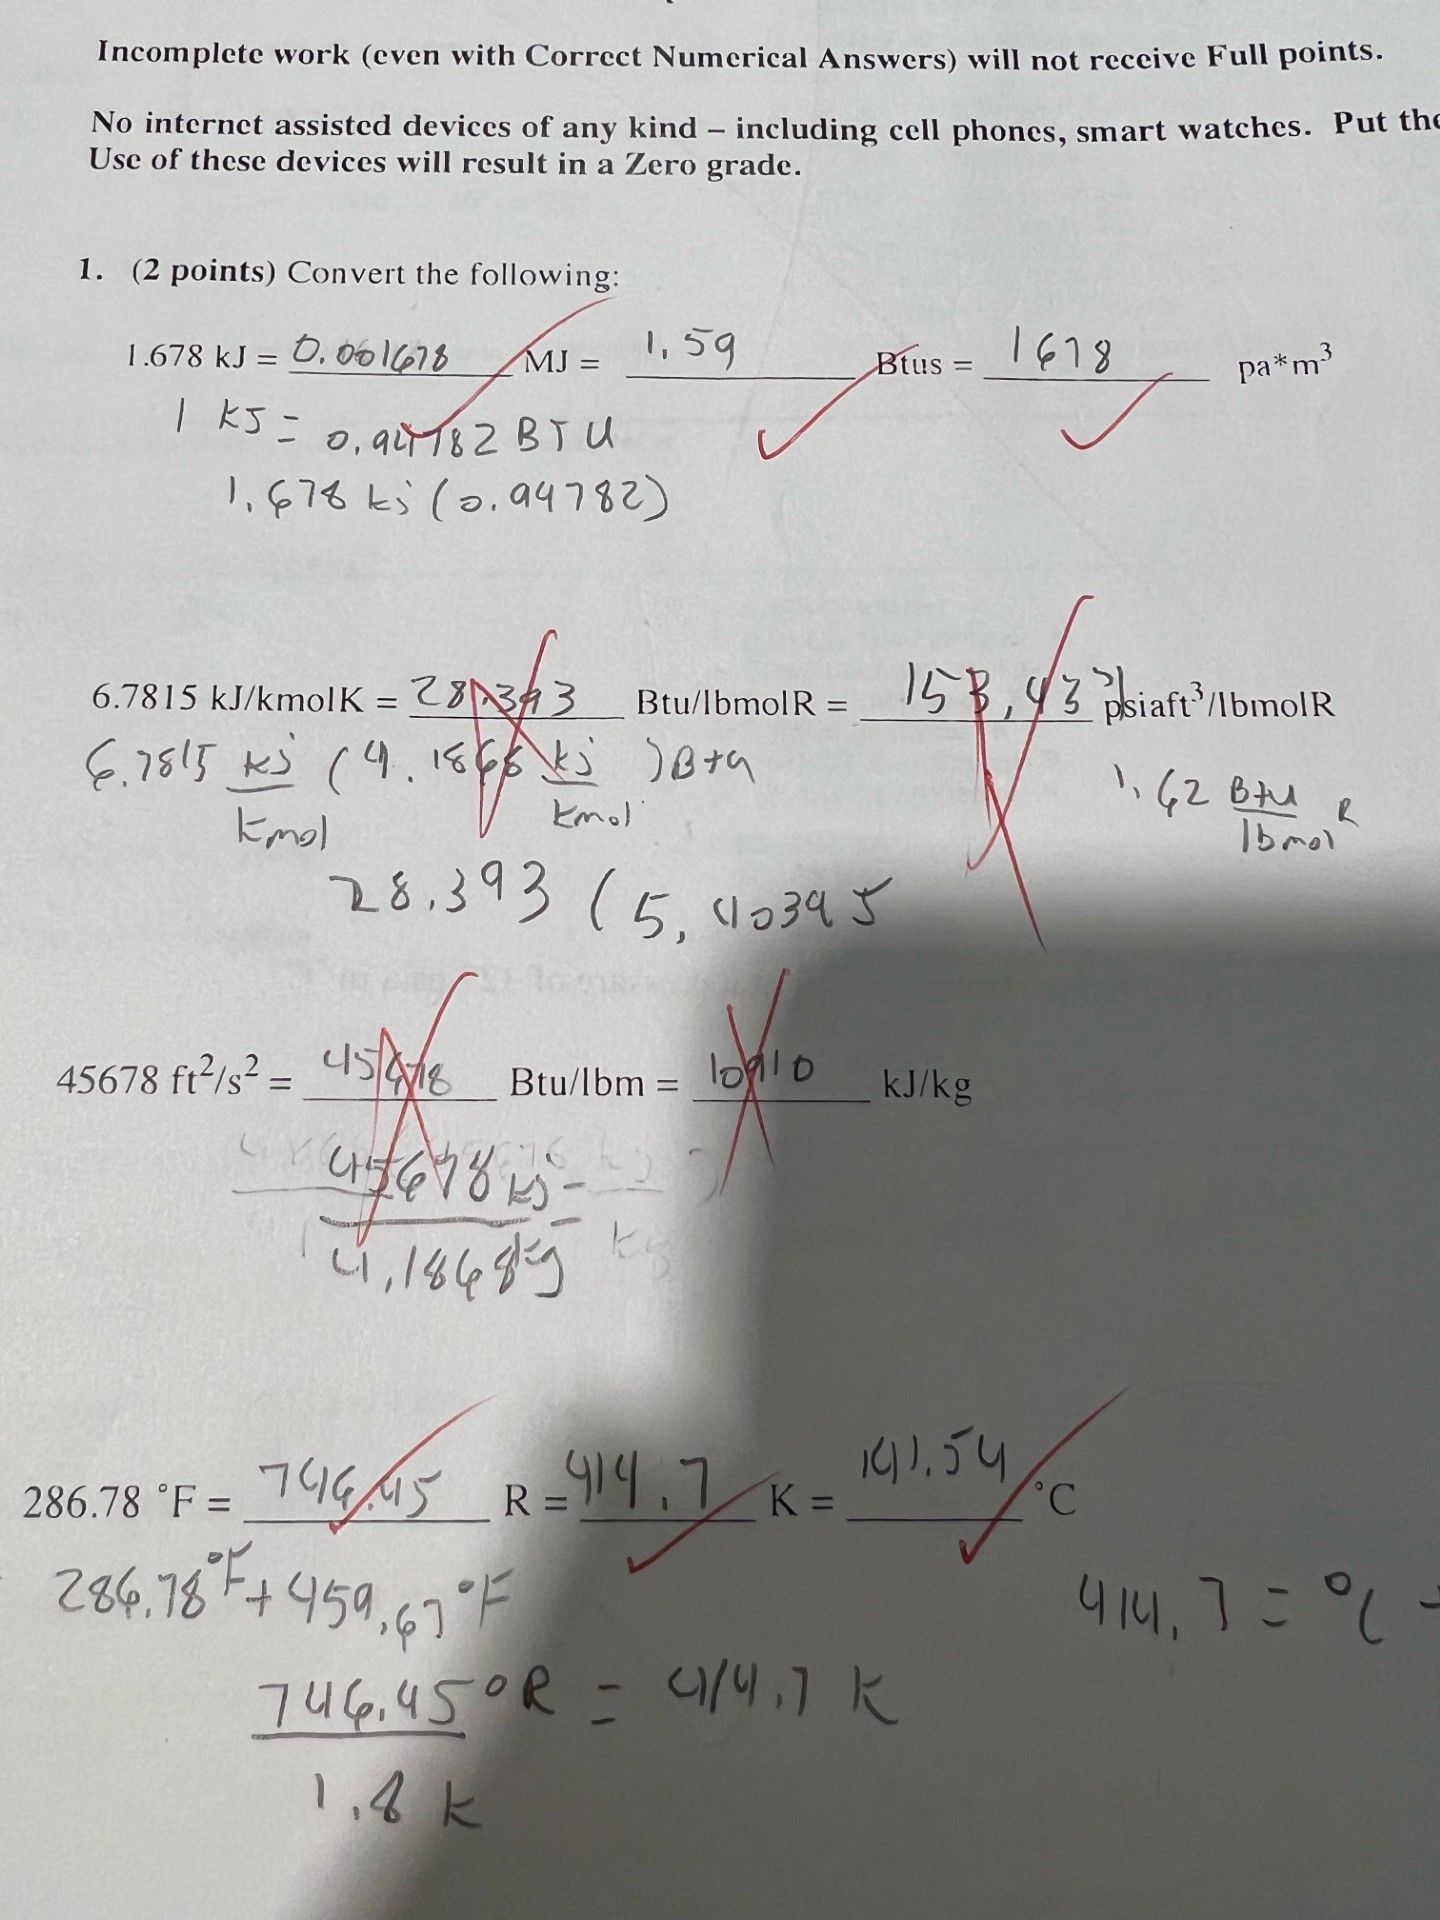 Incomplete work (even with Correct Numerical Answers) will not receive Full points.
No internet assisted devices of any kind – including cell phones, smart watches. Put the
Use of these devices will result in a Zero grade.
1. (2 points) Convert the following:
1.678 kJ = 0.001678 MJ = 1.59 Btus = 1678 pa*m³
1 kJ = 0.94782 BTU
1.678 kj (0.94782)
6.7815 kJ/kmolK = 28.393 Btu/lbmolR = 153.43 psiaft³/lbmolR
6.7815 kj/kmol (4.1868 kj/kmol) Btu
1.62 Btu/lbmol R
28.393 (5.40395
45678 ft²/s² = 45678 Btu/lbm = 10910 kJ/kg
45678 kj =
4.1868 kg
286.78 °F = 746.45 R = 414.7 K = 141.54 °C
286.78 °F + 459.67 °F
414.7 = °C
746.45 °R = 414.7 K
1.8 K